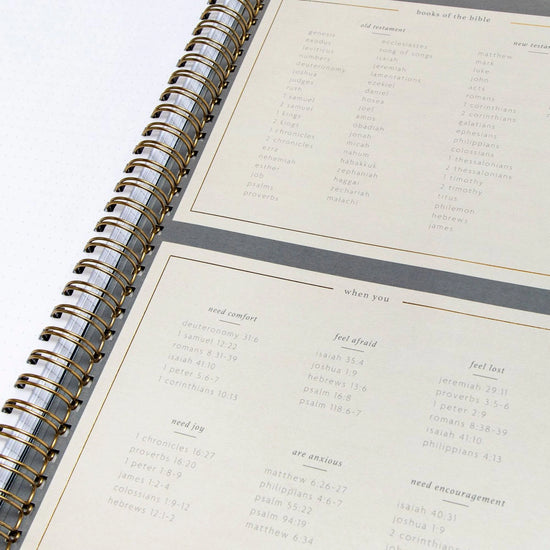 books of the bible
old testament
genesis
exodus
leviticus
numbers
deuteronomy
joshua
judges
ruth
1 samuel
2 samuel
1 kings
2 kings
1 chronicles
2 chronicles
ezra
nehemiah
esther
job
psalms
proverbs
ecclesiastes
song of songs
isaiah
jeremiah
lamentations
ezekiel
daniel
hosea
joel
amos
obadiah
jonah
micah
nahum
habakkuk
zephaniah
haggai
zechariah
malachi
new testa
matthew
mark
luke
john
acts
romans
1 corinthians
2 corinthians
galatians
ephesians
philippians
colossians
1 thessalonians
2 thessalonians
1 timothy
2 timothy
titus
philemon
hebrews
james
when you
need comfort
deuteronomy 31:6
1 samuel 12:22
romans 8:31-39
isaiah 41:10
1 peter 5:6-7
1 corinthians 10:13
feel afraid
isaiah 35:4
joshua 1:9
hebrews 13:6
psalm 16:8
psalm 118:6-7
feel lost
jeremiah 29:11
proverbs 3:5-6
1 peter 2:9
romans 8:38-39
isaiah 41:10
philippians 4:13
need joy
1 chronicles 16:27
proverbs 16:20
1 peter 1:8-9
james 1:2-4
colossians 1:9-12
hebrews 12:1-2
are anxious
matthew 6:26-27
philippians 4:6-7
psalm 55:22
psalm 94:19
matthew 6:34
need encouragement
isaiah 40:31
joshua 1:9
2 corinthians